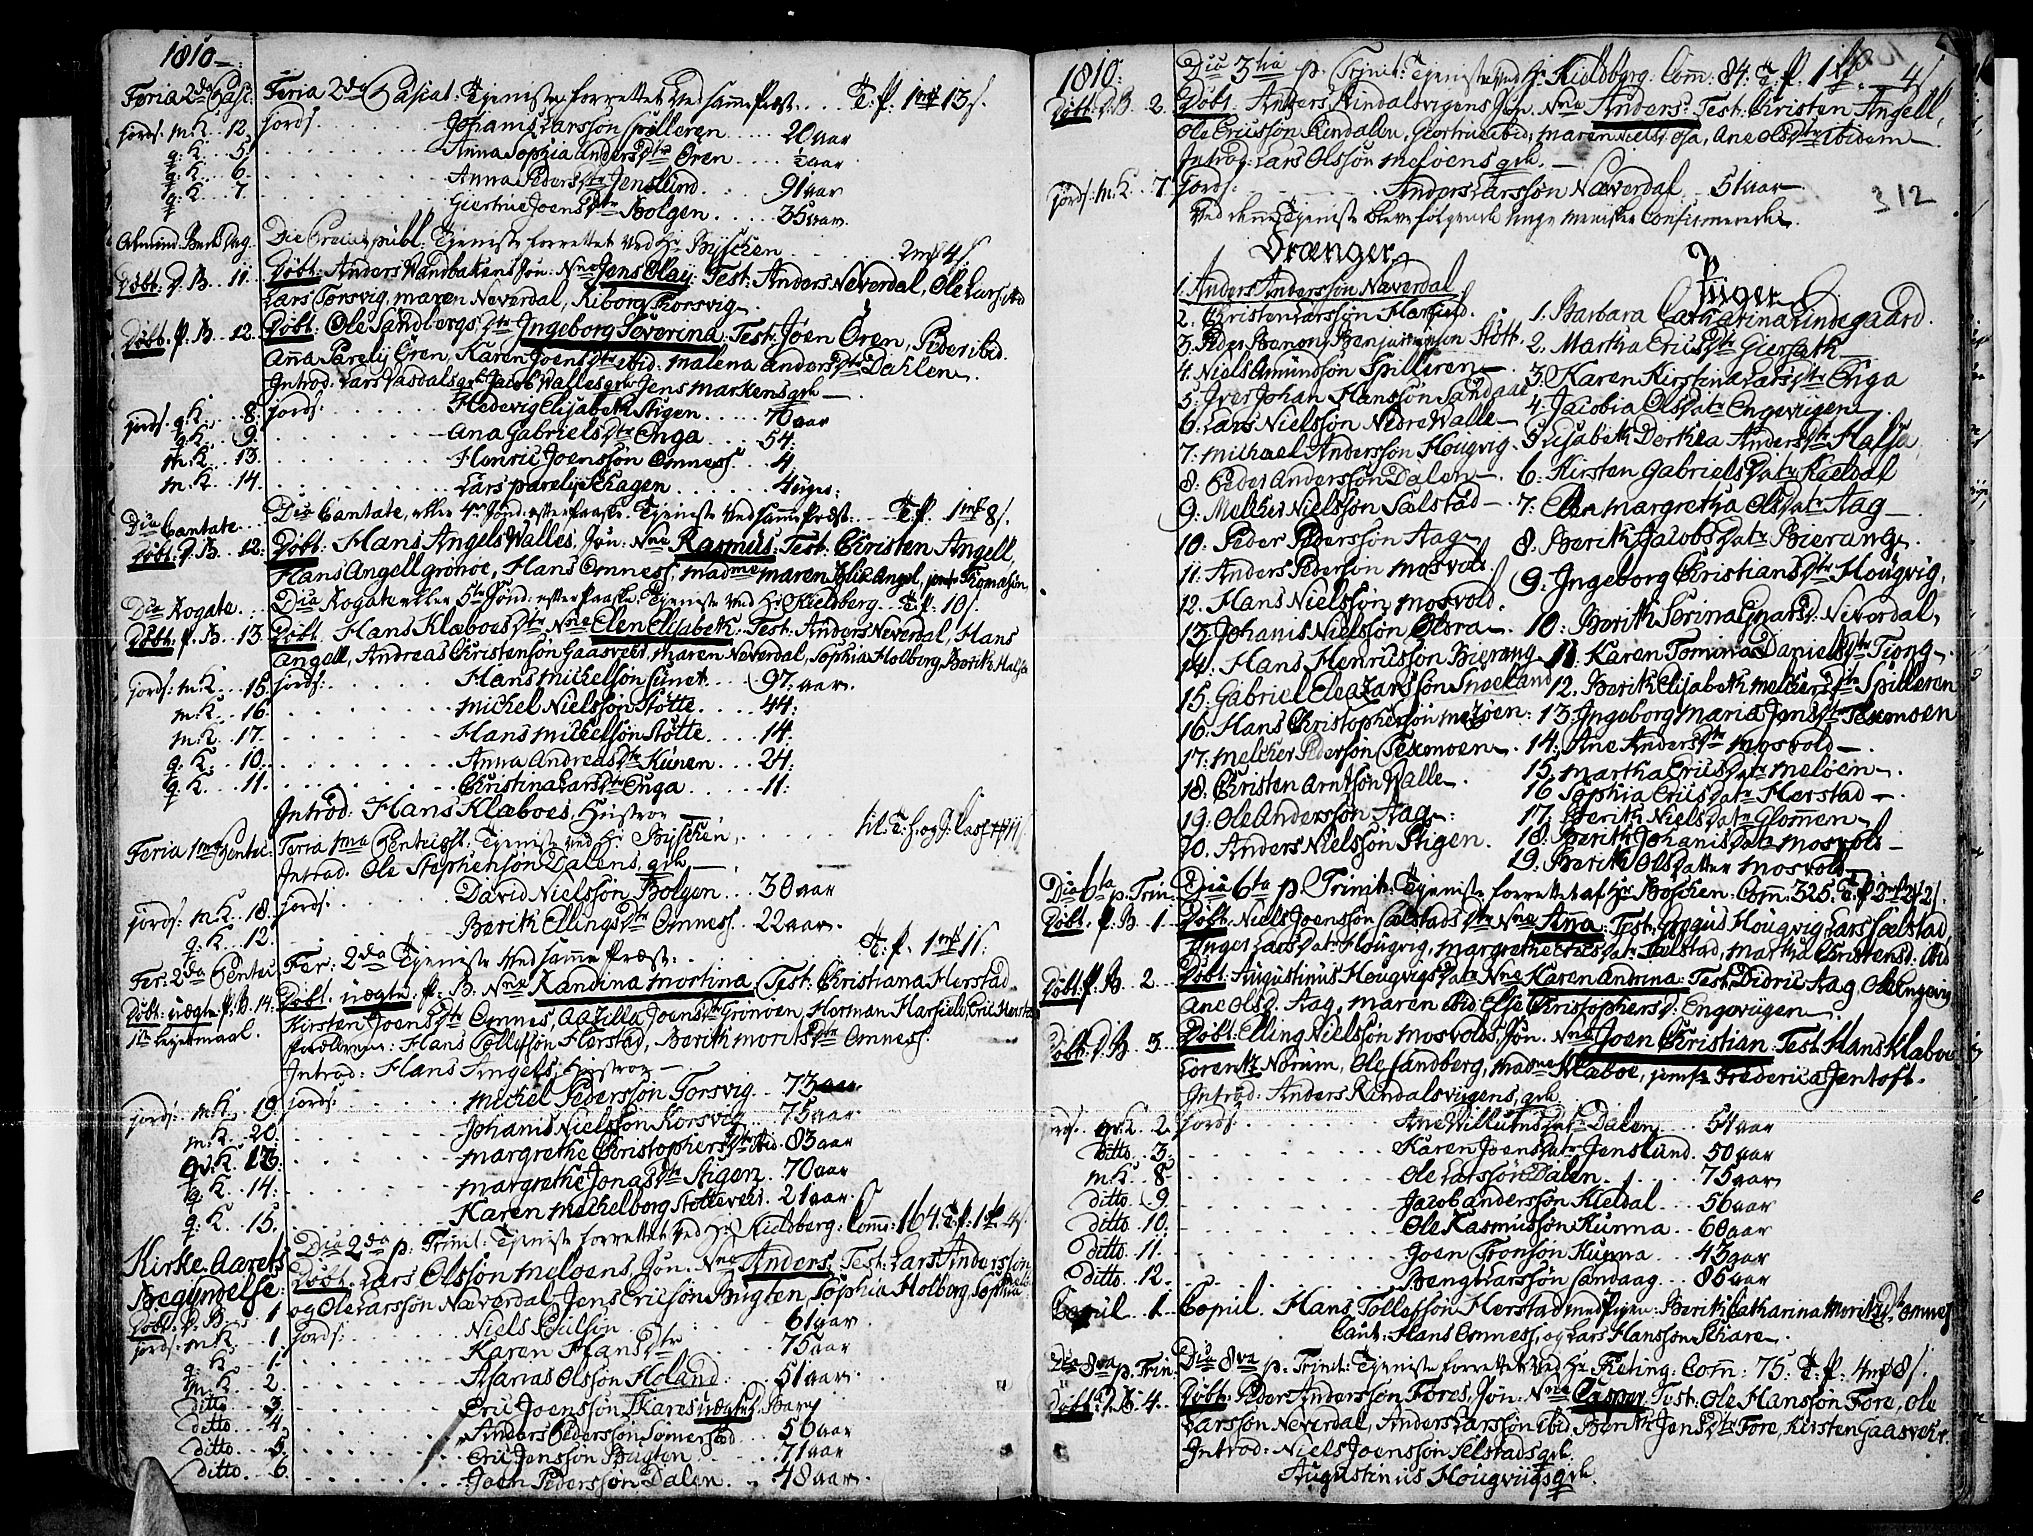 1810
Feria 2da Pasc:
Feria 2da Pascat: Tjeniste forrettet ved samme Præst. T. P. 1 mk 13 s.
jords. m.K. 12. jords. Johanis Larssøn Spilleren 20 aar
q: K. 5. Anna Sophia Anders Dtr Ören ½ aar
q: K. 6. Anna Peders Dtr Jenslund 91 aar
q: K. 7. Giertrue Joens Dtr Bolgen 35 aar
Almind: Bede Dag. Die Precum publ: Tjeniste forrettet ved Hr Byschen 2 mk 4 s.
Døbt: D. B. 11. Døbt: Anders Vandbakens Søn: Nne Jens Olay. Test: Anders Neverdal, Ole Lars ibid
Lars Torsvig, maren Neverdal, Kiborg Korsvig
Døbt: P. B. 12. Døbt: Ole Sandbergs Dtr Ingeborg Severina. Test: Jøen Ören, Peder ibid.
Aña Parelij Ören, Karen Joens Dtr ibid. malena Anders Dtr Dahlen
Introd: Lars Vasdals qvh. Jacob Walles qvh. Jens markens qvh
jords. q: K. 8. jords. Hedevig Elisabeth Stigen 70 aar
q: K. 9. Ana Gabriels Dtr Enga 54.
m: K. 13. Henric Joenssøn Omness 4
m: K. 14. Lars parelij Skagen 4 uger
Dia Cantate Dia Cantate, eller 4de Sønd: efter Paaske. Tjeniste ved samme Præst: T. P. 1 mk 8 s.
Døbt: D. B. 12: Døbt: Hans Angels Walles Søn: Nne Rasmus. Test: Christen Angell,
Hans Angell grønøe, Hans Omness, madme maren Angel, jomfr Thomasin
Dia Rogate Dia Rogate eller 5te Sønd: efter Paaske: Tjeniste ved Hr Kieldberg T. P. 10 s.
Døbt: P. B. 13. Døbt: Hans Klæboes Dtr Nne Elen Elisabeth: Test: Anders Neverdal, Hans
Angell, Andreas Christenson Gaasvær, maren Neverdal, Sophia Holberg, Berith Halsa
jords: m: K. 15. jords: Hans Michelsøn Lunet 97: aar.
m: K. 16. Michel Nielssøn Støtte 44:
m: K. 17. Hans Michelsøn Støtte 14.
q: K. 10. Anna Andreas Dtr Kunen 24:
q: K. 11. Christina Lars Dtr Enga 11:
Introd: Hans Klæboes Hustroe
Feria 1ma Pentec: Feria 1ma Pentecost. Tjeniste ved Hr Byschen
Introd: Ole Stephenson Dalens qvh
jords: m: K. 18. jords: David Nielssøn Bolgen 30 aar
q: K. 12. Berith Ellings Dtr Omness 22 aar.
Fer: 2da Pentec Fer: 2da Tjeniste ved samme Præst: T. P. 1 mk 11 s.
Døbt: uægte P. B. 14. Døbt uægte P. B. Nne Randina Mortina. Test: Christiana Herstad
1te Lejermaal. Kirsten Joens Dtr Omnes, Aazilla Joens Dtr Grønøen, Herman Harfield, Eric Herstad
Forældrene: Hans Tollefsøn Herstad, Berith morits Dtr Omness.
Introd: Hans Angels Hustroe
jords: m: K. 19. jords: Michel Pederssøn Torsvig 73 aar
m: K. 20. Johanis Nielssøn Korsvig 75 aar
Qv. K. 13: Margrethe Christophers Dtr ibid. 83 aar
q: K. 14: Margrethe Jonas Dtr Stigen 70 aar
q: K. 15. Karen Michelborg Støttevers 21 aar
Kirke Aarets Begyndelse: Dia 2da p. Trinit: Tjeniste forrettet ved Hr Kieldberg. Com: 164. T. P. 1 4 s.
Døbt: Lars Olssøn Meløens, Søn: Nne Anders: Test: Lars Anderssøn
Døbt. D. B. 1 og Ole Larssøn Næverdal, Jens Ericsøn Bugten, Sophia Holberg, Sophia
jords: m: K. 1. jords: Niels Povlsøn 61 aar
q: K. 1. Karen Hans Dtr 75 aar
m: K. 2. Asarias Olssøn Holand 51 aar
ditto 3. Eric Joenssøn Skares uægte Barn
ditto 4. Anders Pederssøn Sømerstad 56 aar
ditto 5. Eric Jenssøn Bugten 71 aar
ditto 6. Joen Pederssøn Dalen 48 aar
1810:
Dia 3tia p. Trinit: Tjeniste ved Hr Kieldbyrg. Com: 84. T. P. 1 4 s.
Døbt. D. B. 2. Døbt: Anders Kindalsvigens Søn. Nne Anders: Test: Christen Angell,
Ole Ericssøn Kindalen, Giertrue ibid; maren Niels Osa, Ane Ols Dtr ibidem
Introd: Lars Olssøn meløens qvh.
jords: m: K. 7 jords. Anders Larssøn Næverdal 51 aar
312
Ved denne Tjeniste bleve følgende unge mennisker Confirmerede.
Drænger
1. Anders Anderssøn Næverdal
2. Christen Larssøn Harfield.
3. Peder Benoni Benjaminsøn Støtt
4. Niels Amundsøn Spilleren
5. Iver Johan Hanssøn Sandaae
6. Lars Nielssøn Nedre Walle
7: michael Anderssøn Hougvig
8: Peder Anderssøn Dalen
9: Melcher Nielssøn Selstad
10. Peder Pederssøn Aag
11. Anders Pederson mosvold
12. Hans Nielssøn mosvold.
13. Johanis Nielssøn Ølsra
14. Hans Henricssøn Bierang
15. Gabriel Eleazarssøn Snøeland
16. Hans Christophersøn meløen:
17. melcher Pederssøn Texmoen
18. Christen Arntsøn Walle
19: Ole Anderssøn Aag
20. Anders Nielssøn Stigen
Piger
1. Barbara Catharina Lindegaard.
2. Martha Erics Dtr Giersath
3. Karen Kirstina Lars Dtr Enga
4. Jacobia Ols Datr Engevigen
5. Elisabeth Dorthea Anders Dtr Halsa
6. Kirsten Gabriels Datr Kieldal
7. Elen margretha Ols Datr Aag
8. Berith Jacobs Datr Bierang
9. Ingeborg Christians Dtr Hougvig
10: Berith Serina Neverdal,
11: Karen Tomina Daniels Dtr Tiong
12. Berith Elisabeth melchers Dtr Spilleren
13. Ingeborg Maria Jens Dtr Texmoen
14: Ane Anders Dtr mosvold
15. Martha Erics Datr meløen
16 Sophia Erics Datr Herstad
17. Berith Niels Datr Glommen
18. Berith Johanis Datr mosvold
19. Berith Ols Datter mosvold
Dia 6ta p. Trin: Dia 6ta p. Trinit: Tjeniste forrettet af Hr Boschen: Com: 325. T. P. 2
Døbt. P. B. 1. Døbt: Niels Joenssøn Selstads Dtr Nne Anna: Test: Hougvig Lars Selstad,
Inger Lars Datr Hougvig, margrethe Erics Datr Selstad, Martha Christens D. ibid
Døbt P. B. 2 Døbt: Augustinus Hougvigs Datr Nne Karen Andrina: Test: Didric Aag, Ole Engevig
Ane Ols D. Aag, maren ibid Else Christophers D: Engevigen
Døbt. D. B. 3. Døbt: Elling Nielssøn mosvolds, Søn: Nne Joen Christian: Test: Hans Klæboe
Lorentz Norum, Ole Sandberg, madme Klæboe, jomfr Frederica Jentoft.
Introd: Anders Kindalsvigens, qvh
jords. qv. K. 2. jords. Ane Willums Datr Dalen 54 aar
ditto 3. Karen Joens Datr Jenslund 50 aar
m: K. 8 Ole Larssøn Dalen 75 aar
ditto 9. Jacob Anderssøn Kieldal 56 aar
ditto 10. Ole Rasmussøn Kunna 60 aar
ditto 11. Joen Tronson Kunna 45 aar
ditto 12. Bengt Larssøn Sandaag 85 aar
Copul 1. Copul. Hans Tollefssøn Herstad med Pigen: Berith Catharina Morits Dtr Omness
Caut: Hans Omness og Lars Hanssøn Skare
Dia 8va p. Trin: Dia 8va p. Trinit: Tjeniste forrettet ved Hr Fieting: Com: 75. T. P. 4 mk 8 s.
Døbt. D. B. 4. Døbt: Peder Anderssøn Fores, Søn: Nne Casper. Test: Ole Hanssøn Fore, Ole
Larssøn Neverdal, Anders Larssøn ibid. Berith Jens Dtr Fore, Kirsten Gaasvær.
Introd: Niels Joenssøn Selstads qvh.
Augustinus Hougvigs qvh.